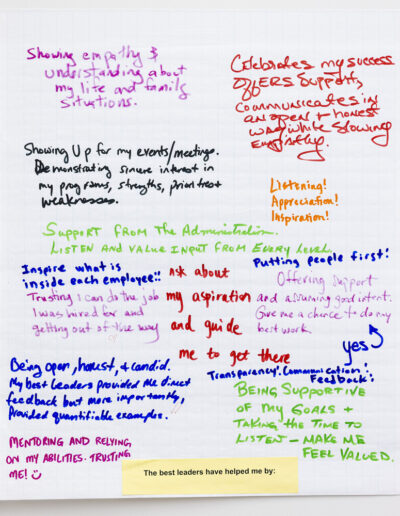 Showing empathy &
understanding about
my life and family
situations.
Celebrates my success
OFFERS Support,
Communicates in
an open + honest
way while showing
Empathy.
Showing Up for my events/meetings.
Demonstrating sincere interest in
my programs, strengths,
weaknesses.
Listening!
Appreciation!
Inspiration!
Support from The Administration.
Listen and value Input from Every level.
Inspire what is
inside each employee!!
Trusting I can do the job
I was hired for and
getting out of the way
ask about
my aspiration
and guide
me to get there
Putting people first!
Offering support
and assuming good intent.
Give me a chance to do my
best work.
yes
Being open, honest, & candid.
My best leaders provided me direct
feedback but more importantly,
Provided quantifiable examples.
Transparency! Communication!
Feedback!
BEING SUPPORTIVE
OF MY GOALS +
TAKING THE TIME TO
LISTEN - MAKE ME
FEEL VALUED.
MENTORING AND RELYING,
ON MY ABILITIES. TRUSTING
ME!
The best leaders have helped me by: